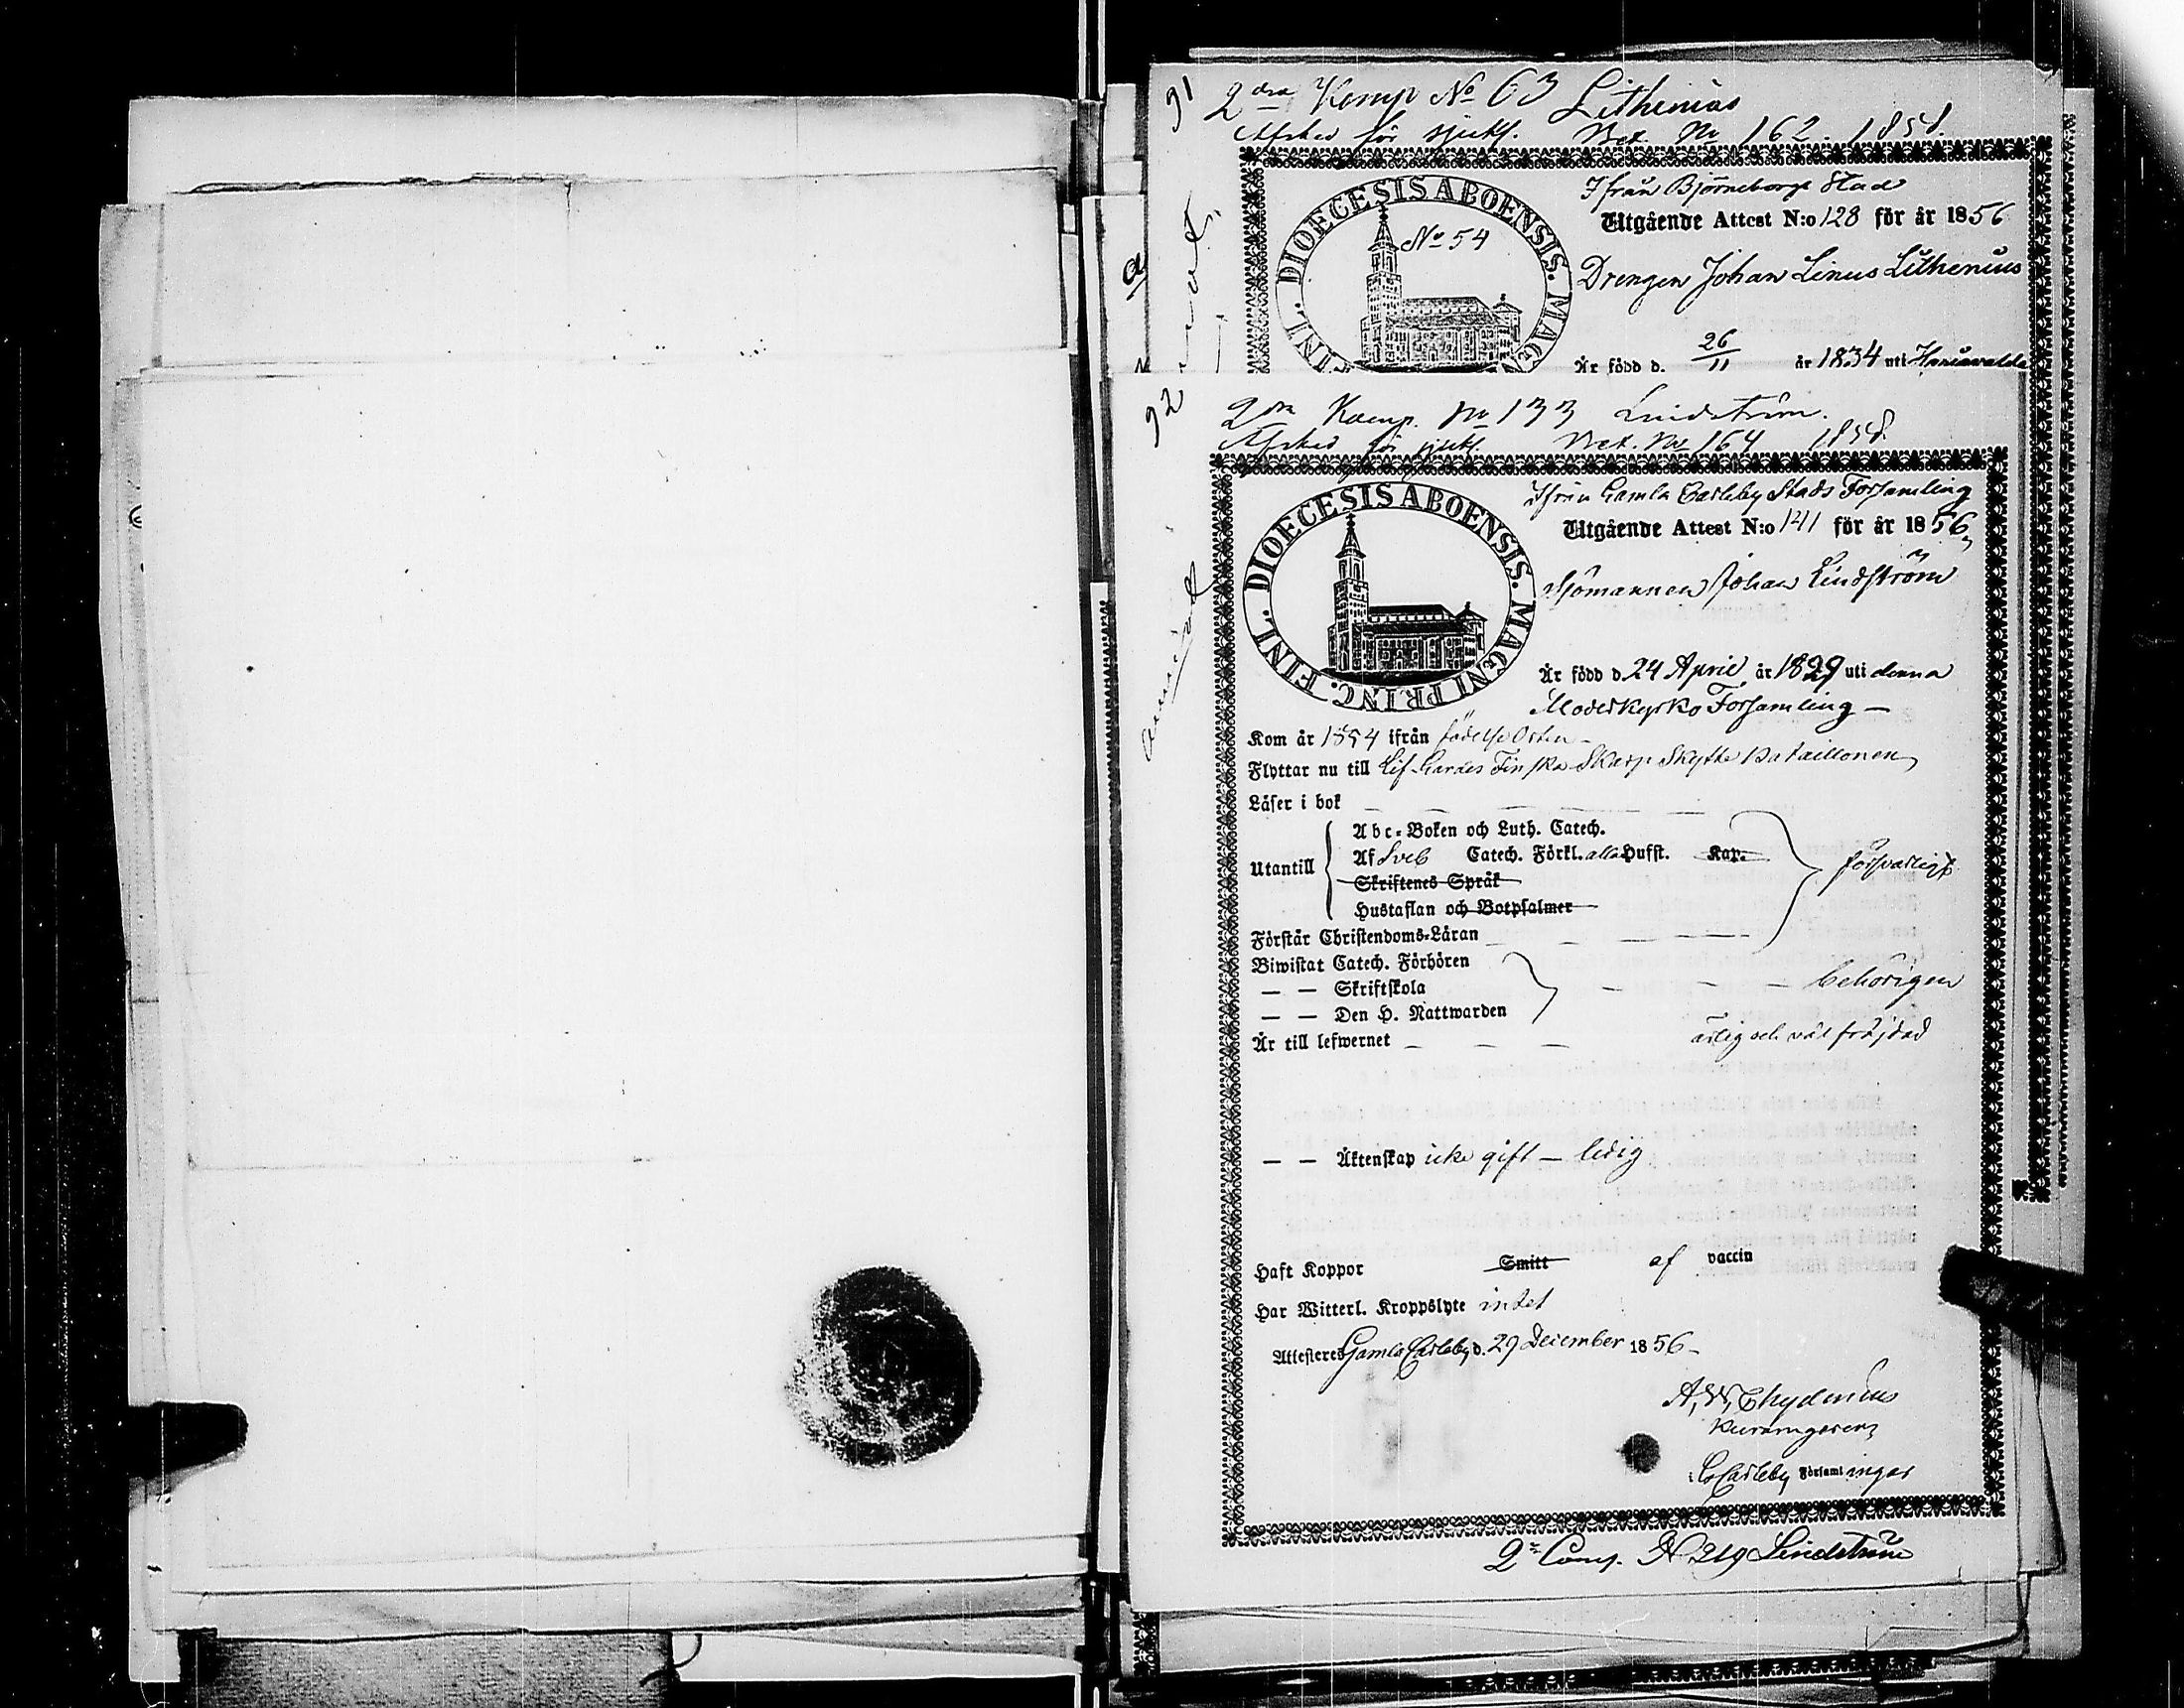 91
2dra Komp No 63 Lithenius
Afsked för sjukl. Bet. No 162. 1858.
DIOECESIS ABOENSIS. MAG FINL.
No 54
Ifrån Björneborgs Stad
Utgående Attest N:o 128 för år 1856
Drengen Johan Linus Lithenius
Är född d. 26/11 år 1834 uti
92
2dra Komp. No 133 Lindström.
Afsked för sjukl. Bet. No 164 1858.
DIOECESIS ABOENSIS. MAGNI PRINC. FINL.
Ifrån Gamla Carleby Stads Församling
Utgående Attest N:o 141 för år 1856
Sjömannen Johan Lindström
Är född d 24 April år 1829 uti denna
Moderkyrko Församling —
Kom år 1854 ifrån födelse Orten —
Flyttar nu till Lif-Gardes Finska Skarp Skytte Bataillonen
Läser i bok
Utantill
Abc-Boken och Luth. Catech.
Af Sveb Catech. Förkl. alla Hufst. Kap.
Skriftenes Språk
Hustaflan och Botpsalmer
försvarligt
Förstår Christendoms-Läran
Biwistat Catech. Förhören
— — Skriftskola
— — Den H. Nattwarden
behörigen
Är till lefwernet — — — ärlig och väl fräjdad
— — Äktenskap icke gift — ledig
Haft Koppor Smitt af vaccin
Har Witterl. Kroppslyte intet
Attesteras Gamla Carleby d. 29 December 1856 —
A. W. Chydenius
G Carleby Församlingar
2 Comp. N 219 Lindström